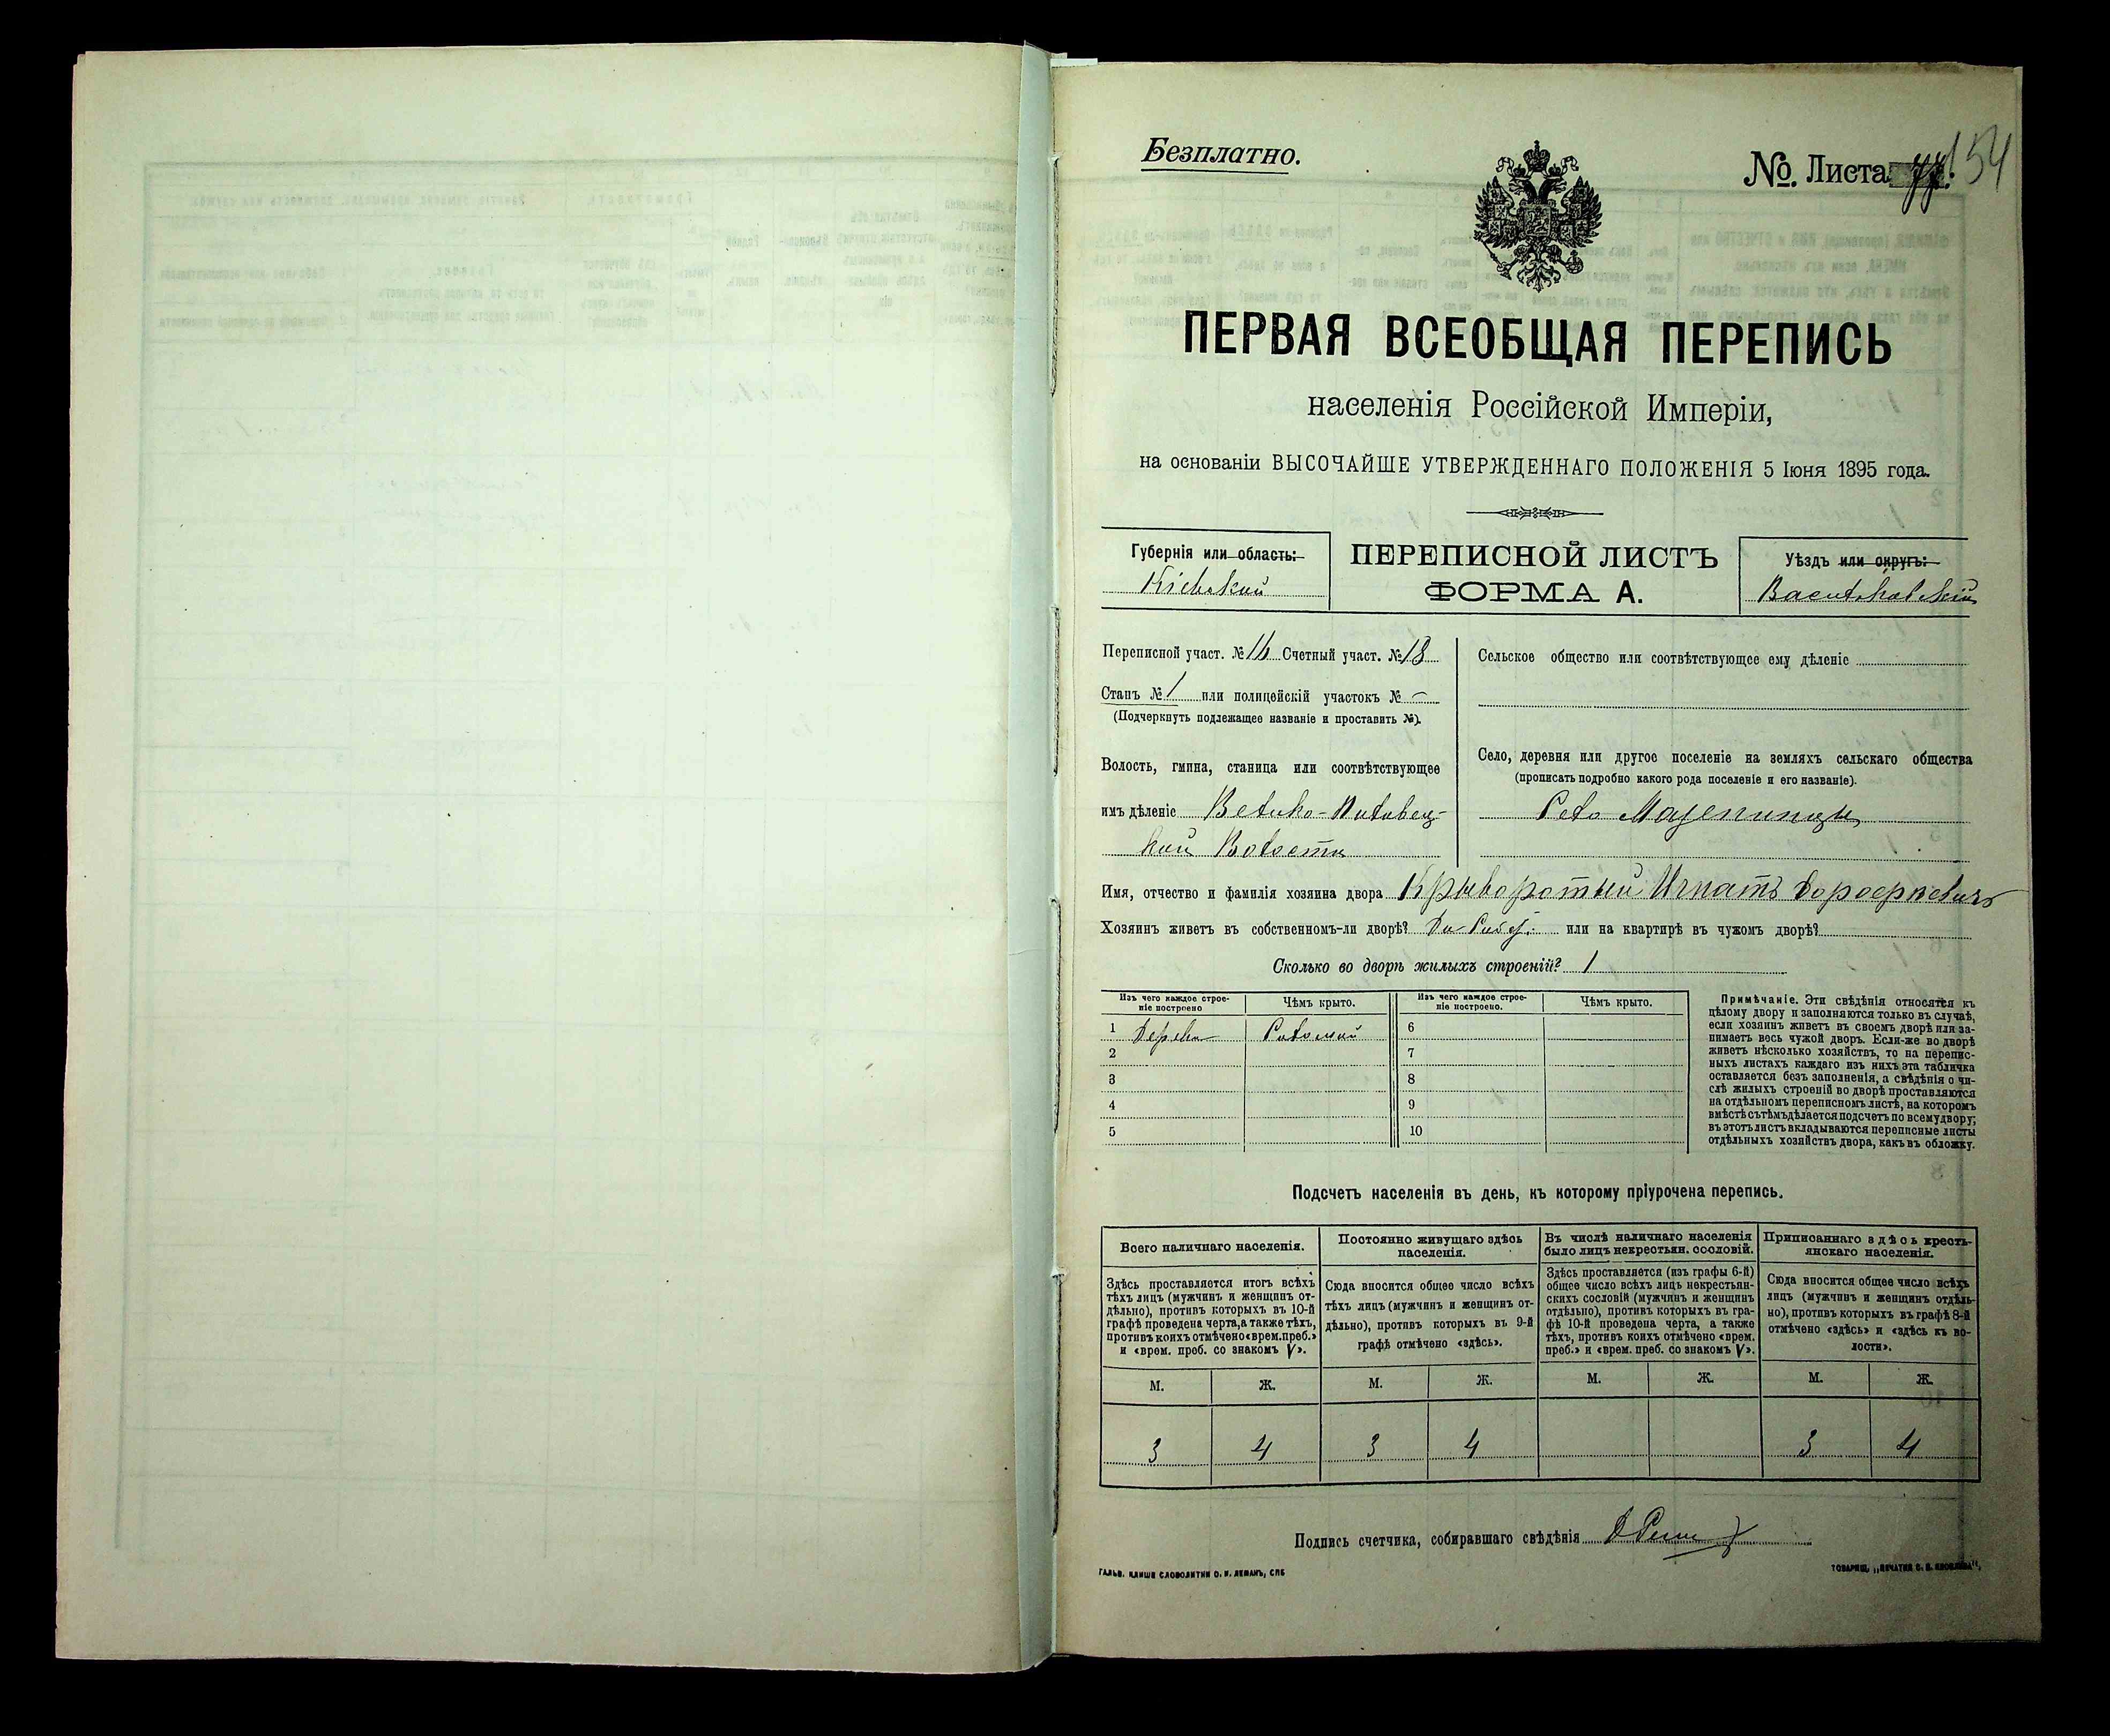 Безплатно.
№. Листа 77. 154
ПЕРВАЯ ВСЕОБЩАЯ ПЕРЕПИСЬ
населенія Россійской Имперіи,
на основаніи ВЫСОЧАЙШЕ УТВЕРЖДЕННАГО ПОЛОЖЕНІЯ 5 Іюня 1895 года.
Губернія или область:
Кіевской
ПЕРЕПИСНОЙ ЛИСТЪ
ФОРМА А.
Уѣздъ или округъ:
Васильковскій
Переписной участ. № 16 Счетный участ. № 18
Станъ № 1 или полицейскій участокъ № —
(Подчеркнуть подлежащее названіе и проставить №).
Волость, гмина, станица или соотвѣтствующее
имъ дѣленіе Велико-Половец-
кой Волости
Сельское общество или соотвѣтствующее ему дѣленіе
Село, деревня или другое поселеніе на земляхъ сельскаго общества
(прописать подробно какого рода поселеніе и его названіе).
Село Мазепинцы
Имя, отчество и фамилія хозяина двора Крыворотый Игнатъ Дорофеевичъ
Хозяинъ живетъ въ собственномъ-ли дворѣ? или на квартирѣ въ чужомъ дворѣ?
Сколько во дворѣ жилыхъ строеній? 1
Изъ чего каждое строе-
ніе построено
Чѣмъ крыто.
Изъ чего каждое строе-
ніе построено.
Чѣмъ крыто.
1 Дерева Соломой
2
3
4
5
6
7
8
9
10
Примѣчаніе. Эти свѣдѣнія относятся къ
цѣлому двору и заполняются только въ случаѣ,
если хозяинъ живетъ въ своемъ дворѣ или за-
нимаетъ весь чужой дворъ. Если-же во дворѣ
живетъ нѣсколько хозяйствъ, то на перепис-
ныхъ листахъ каждаго изъ нихъ эта табличка
оставляется безъ заполненія, а свѣдѣнія о чи-
слѣ жилыхъ строеній во дворѣ проставляются
на отдѣльномъ переписномъ листѣ, на которомъ
вмѣстѣ съ тѣмъ дѣлается подсчетъ по всему двору;
въ этотъ листъ вкладываются переписные листы
отдѣльныхъ хозяйствъ двора, какъ въ обложку.
Подсчетъ населенія въ день, къ которому пріурочена перепись.
Всего наличнаго населенія.
Здѣсь проставляется итогъ всѣхъ
тѣхъ лицъ (мужчинъ и женщинъ от-
дѣльно), противъ которыхъ въ 10-й
графѣ проведена черта, а также тѣхъ,
противъ коихъ отмѣчено «врем. преб.»
и «врем. преб. со знакомъ V».
Постоянно живущаго здѣсь
населенія.
Сюда вносится общее число всѣхъ
тѣхъ лицъ (мужчинъ и женщинъ от-
дѣльно), противъ которыхъ въ 9-й
графѣ отмѣчено «здѣсь».
Въ числѣ наличнаго населенія
было лицъ некрестьян. сословій.
Здѣсь проставляется (изъ графы 6-й)
общее число всѣхъ лицъ некрестьян-
скихъ сословій (мужчинъ и женщинъ
отдѣльно), противъ которыхъ въ гра-
фѣ 10-й проведена черта, а также
тѣхъ, противъ коихъ отмѣчено «врем.
преб.» и «врем. преб. со знакомъ V».
Приписаннаго здѣсь кресть-
янскаго населенія.
Сюда вносится общее число всѣхъ
лицъ (мужчинъ и женщинъ отдѣль-
но), противъ которыхъ въ графѣ 8-й
отмѣчено «здѣсь» и «здѣсь къ во-
лости».
М. Ж. М. Ж. М. Ж. М. Ж.
3 4 3 4 3 4
Подпись счетчика, собиравшаго свѣдѣнія
ГАЛЬВ. КЛИШЕ СЛОВОЛИТНИ О. И. ЛЕМАНЪ, СПБ
ТОВАРИЩ. „ПЕЧАТНЯ С. П. ЯКОВЛЕВА“,